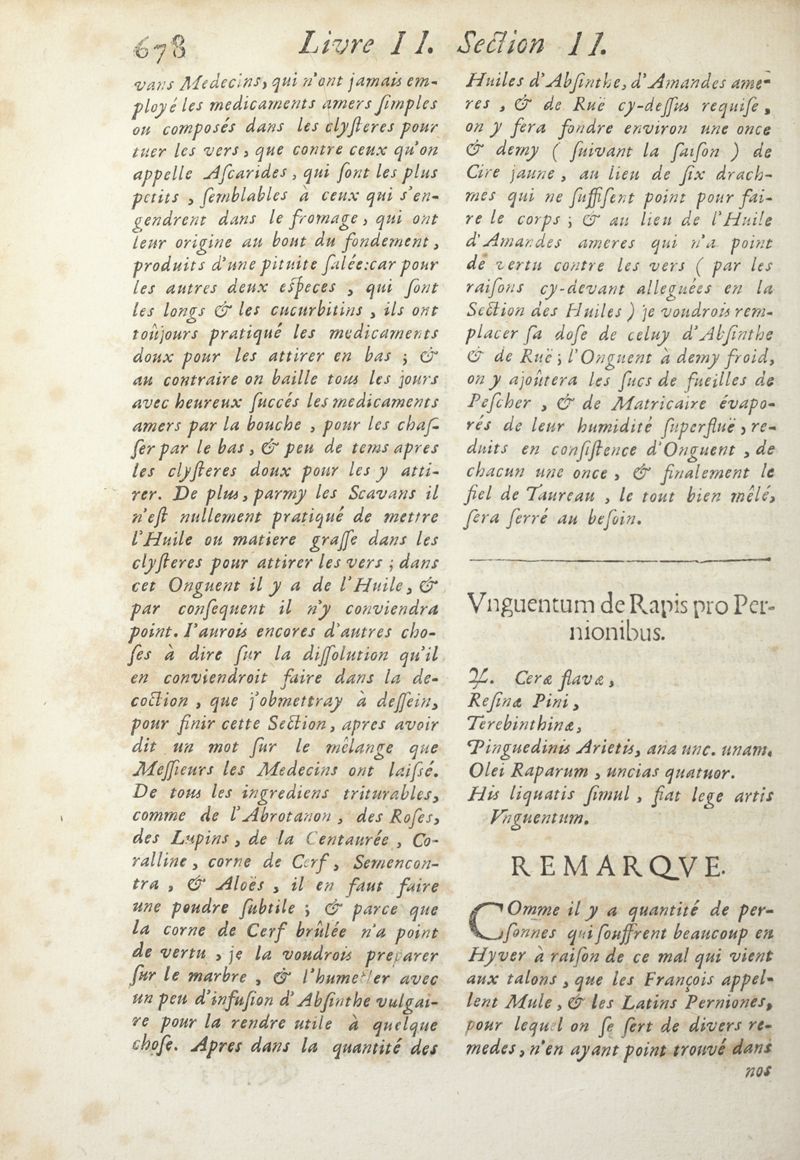 678 Livre II. Section II.
vans Medecins, qui n'ont jamais em-
ployé les medicaments amers simples
ou composés dans les clysteres pour
tuer les vers, que contre ceux qu'on
appelle Ascarides, qui sont les plus
petits, semblables à ceux qui s'en-
gendrent dans le fromage, qui ont
leur origine au bout du fondement,
produits d'une pituite salée:car pour
les autres deux especes, qui sont
les longs & les cucurbitins, ils ont
toûjours pratiqué les medicaments
doux pour les attirer en bas; &
au contraire on baille tous les jours
avec heureux succés les medicaments
amers par la bouche, pour les chas-
ser par le bas, & peu de tems apres
les clysteres doux pour les y atti-
rer. De plus, parmy les Scavans il
n'est nullement pratiqué de mettre
l'Huile ou matiere grasse dans les
clysteres pour attirer les vers; dans
cet Onguent il y a de l'Huile, &
par consequent il n'y conviendra
point. I'aurois encores d'autres cho-
ses à dire sur la dissolution qu'il
en conviendroit faire dans la de-
coction, que j'obmettray à dessein,
pour finir cette Section, apres avoir
dit un mot sur le mêlange que
Messieurs les Medecins ont laissé.
De tous les ingrediens triturables,
comme de l'Abrotanon, des Roses,
des Lupins, de la Centaurée, Co-
ralline, corne de Cerf, Semencon-
tra, & Aloës, il en faut faire
une poudre subtile; & parce que
la corne de Cerf brûlée n'a point
de vertu, je la voudrois preparer
sur le marbre, & l'humecter avec
un peu d'infusion d'Absinthe vulgai-
re pour la rendre utile à quelque
chose. Apres dans la quantité des
Huiles d'Absinthe, d'Amandes ame-
res, & de Ruë cy-dessus requise,
on y fera fondre environ une once
& demy ( suivant la saison ) de
Cire jaune, au lieu de six drach-
mes qui ne suffisent point pour fai-
re le corps; & au lieu de l'Huile
d'Amandes ameres qui n'a point
de vertu contre les vers ( par les
raisons cy-devant alleguées en la
Section des Huiles ) je voudrois rem-
placer sa dose de celuy d'Absinthe
& de Ruë; l'Onguent à demy froid,
on y ajoûtera les sucs de fueilles de
Pescher, & de Matricaire évapo-
rés de leur humidité superfluë, re-
duits en consistence d'Onguent, de
chacun une once, & finalement le
fiel de Taureau, le tout bien mêlé,
sera serré au besoin.
Vnguentum de Rapis pro Per-
nionibus.
℞. Ceræ flavæ,
Resinæ Pini,
Terebinthinæ,
Pinguedinis Arietis, ana unc. unam.
Olei Raparum, uncias quatuor.
His liquatis simul, fiat lege artis
Vnguentum.
REMARQVE.
COmme il y a quantité de per-
sonnes qui souffrent beaucoup en
Hyver à raison de ce mal qui vient
aux talons, que les François appel-
lent Mule, & les Latins Perniones,
pour lequel on se sert de divers re-
medes, n'en ayant point trouvé dans
nos